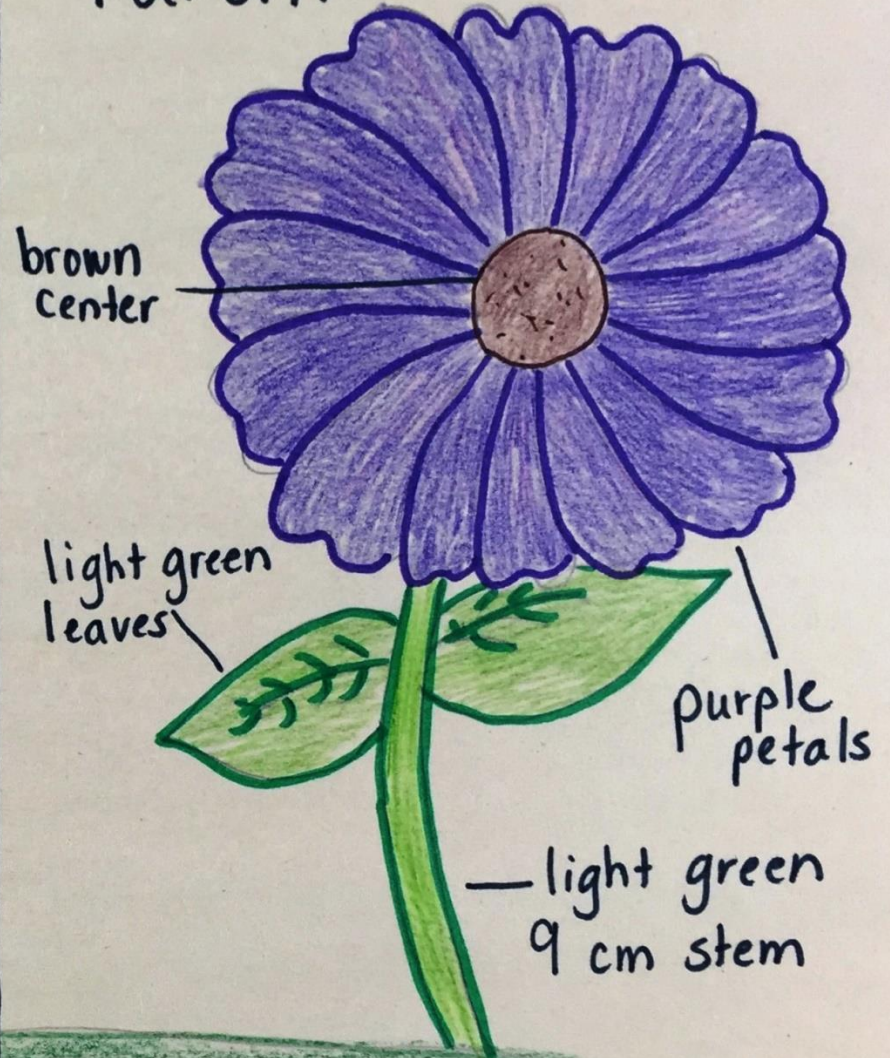 brown
center
light green
leaves
purple
petals
light green
9 cm stem